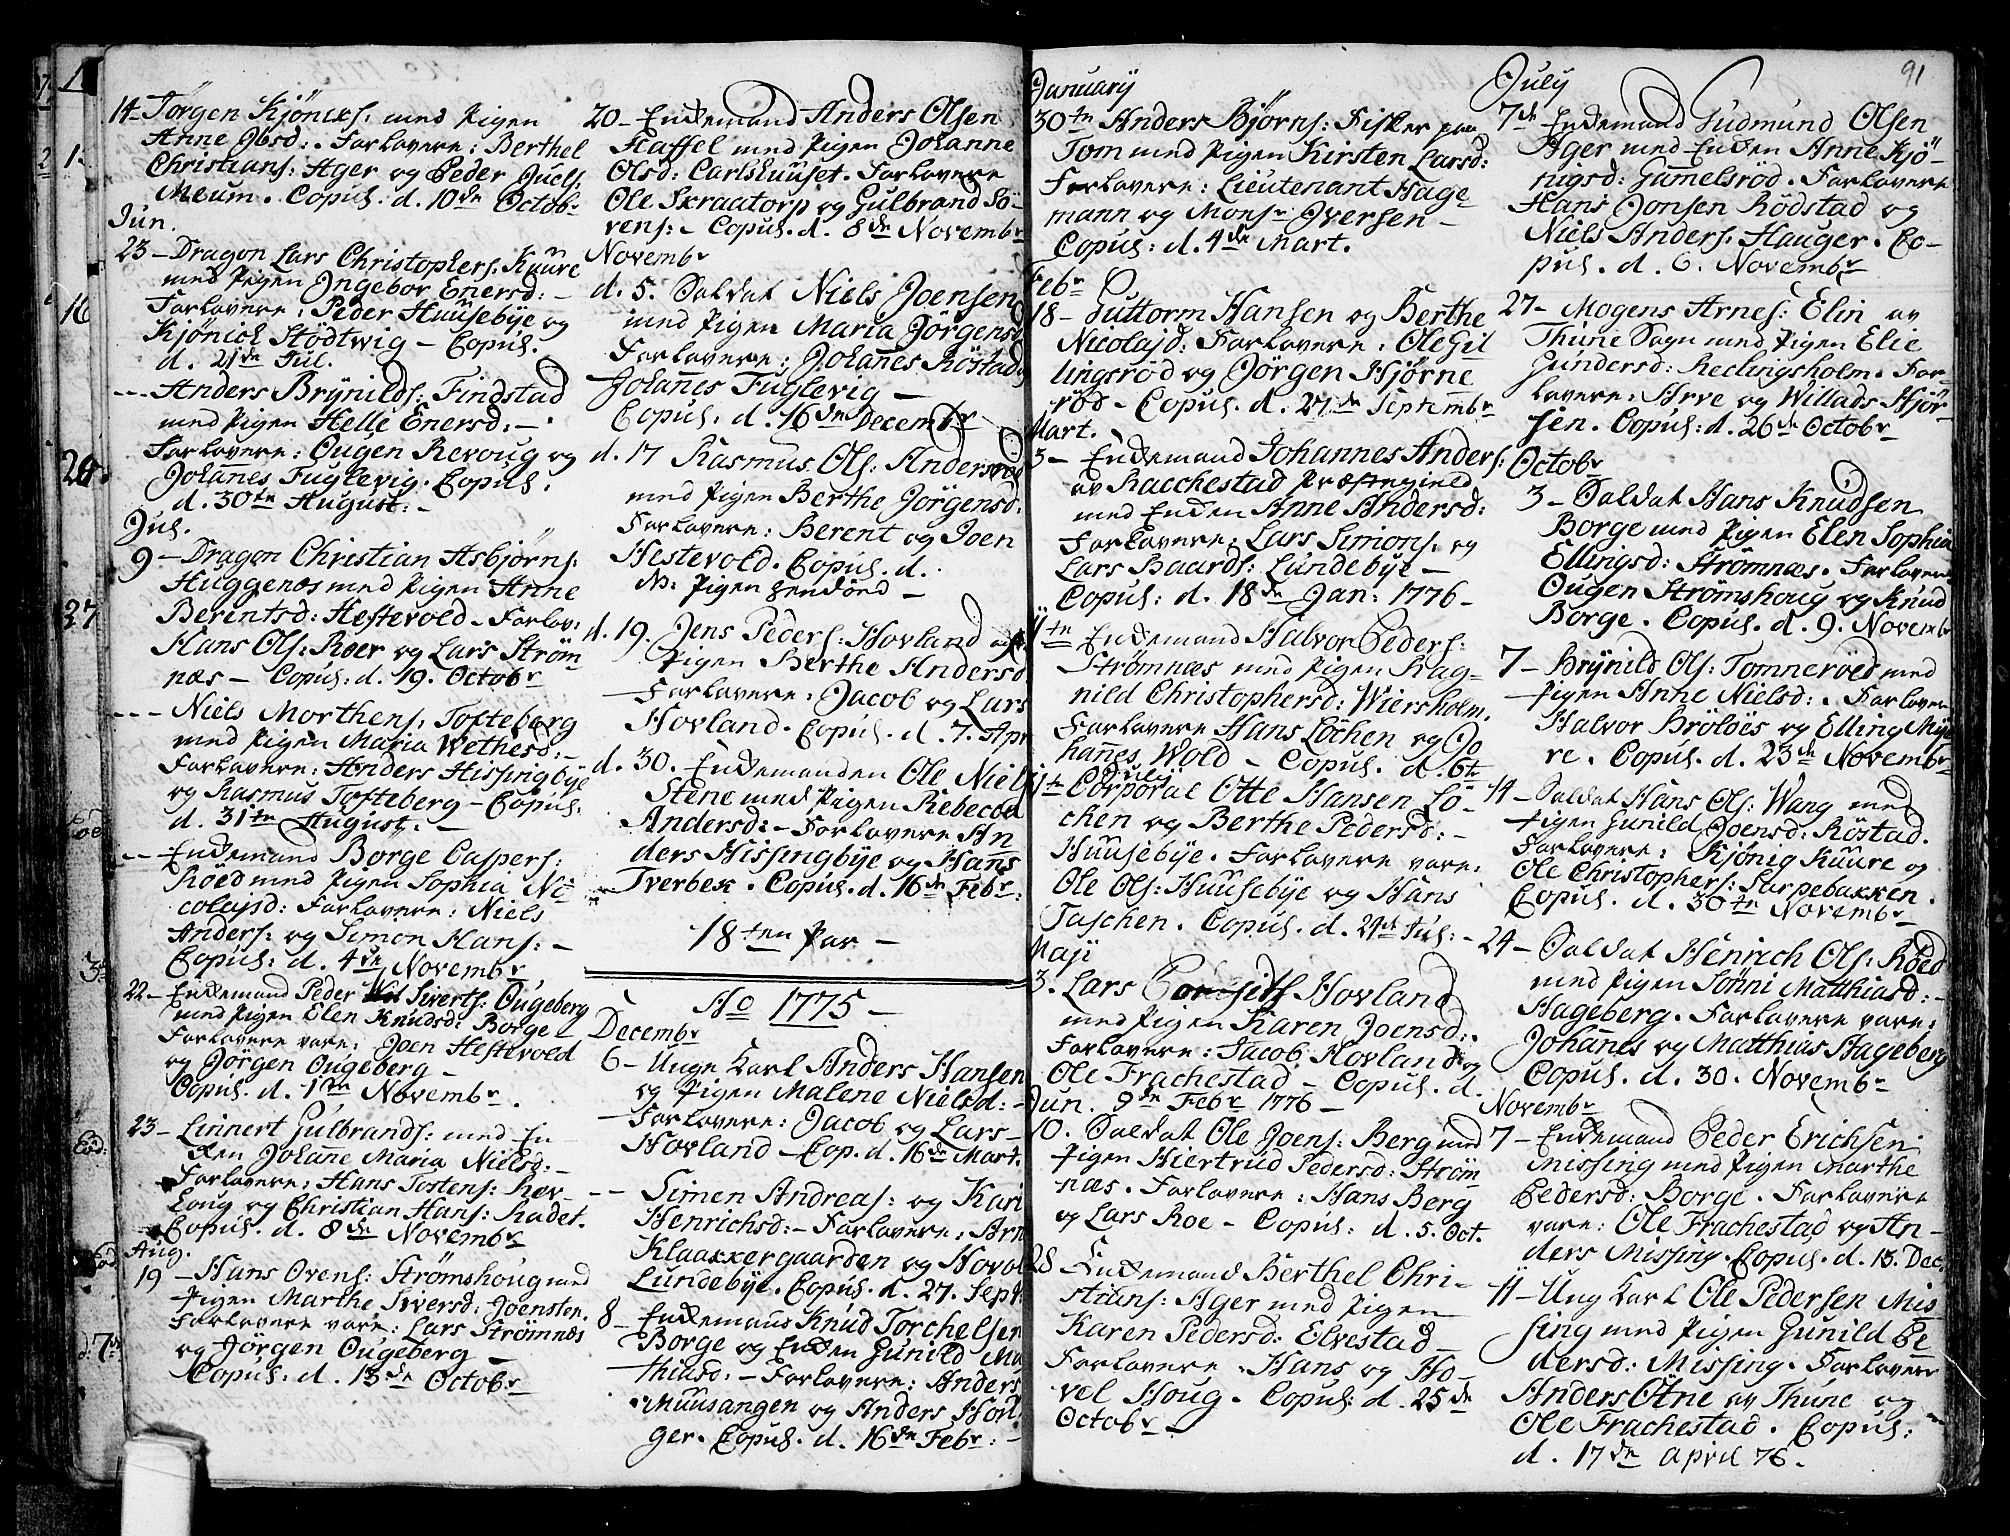 14- Jørgen Kjönics: med Pigen
Anne Ibsd: - Forlovere: Berthel
Christians: Ager og Peder Juels:
Meum. Copul. d. 10de Octobr
Jun.
23 - Dragon Lars Christophers: Kuure
med Pigen Ingebor Enersd: -
Forlovere: Peder Huusebÿe og
Kjönick Stödtwig - Copul.
d. 21de Jul.
--- Anders Brÿnilds: Findstad
med Pigen Helle Enersd: -
Forlovere: Ougen Revoug og
Johannes Fuglevig. Copul:
d. 30te August: -
Jul.
9 - Dragon Christian Asbjørns:
Huggenæs med Pigen Anne
Berentsd: Hestevold - Forlov:
Hans Ols: Roer og Lars Ström
næs - Copul: d. 19. Octobr
--- Niels Morthens: Tofteberg
med Pigen Maria Wethesd: -
Forlovere: Anders Hissingbÿe
og Rasmus Tofteberg - Copul:
d. 31te August: -
-- Enkemand Borge Caspers:
Roed med Pigen Sophia Ni-
colaysd: Forlovere: Niels
Anders: og Simon Hans: -
Copul: d. 4de Novembr
22 - Enkemand Peder Siverts: Ougeberg
med Pigen Elen Knudsd: Borge
Forlovere vare: Joen Hestevold
og Jörgen Ougeberg -
Copul. d. 1ste Novembr.
23 - Linnert Gulbrands: med En-
ken Johane Maria Nielsd: -
Forlovere: Hans Tostens: Rev-
houg og Christian Hans: Kadet.
Copul. d. 8de Novembr
Aug.
19 - Hans Ovens: Strömshoug med
Pigen Marthe Siversd: Joensten.
Forlovere vare: Lars Strömnæs
og Jörgen Ougeberg -
Copul: d. 13de Octobr
20 - Enkemand Anders Olsen
Haffel med Pigen Johanne
Olsd: Carlshuuset. Forlovere
Ole Skraatorp og Gulbrand Sö-
rens: - Copul. d. 8de Novembr
Novembr
d. 5. Soldat Niels Joensen
med Pigen Maria Jörgensd
Forlovere: Johannes Röstad
Johannes Fuglevig -
Copul. d. 16de Decembr
d. 17 Rasmus Ols: Andersröd
med Pigen Berthe Jörgensd:
Forlovere: Berent og Joen
Hestevold. Copul. d. .
N: Pigen
d. 19. Jens Peders: Hovland med
Pigen Berthe Andersd
Forlovere: Jacob og Lars
Hovland. Copul. d. 7. Apr
d. 30. Enkemanden Ole Niels
Stene med Pigen Rebecca
Andersd: - Forlovere An
ders Hissingbÿe og Hans
Tverbek. Copul. d. 16de Febr:
18ten Par -
Ao 1775 -
Decembr
6 - Unge Karl Anders Hansen
og Pigen Malene Nielsd: -
Forlovere: Jacob og Lars
Hovland - Cop. d. 16de Mart.
-- Simen Andreas: og Kari
Henrichsd: - Forlovere: Arn
Klaakkergaarden og Hovel
Lundebÿe. Copul. d. 27. Sept:
8 - Enkemand Knud Torchelsen
Borge og Enken Gunild Ma
thiasd: - Forlovere: Anders
Muusangen og Anders Hou
ger. Copul. d. 16de Febr: -
91
Januarÿ
30te Anders Bjørns: Fisker paa
Tom med Pigen Kirsten Larsd:
Forlovere: Lieutenant Hage
mann og Monsr Iversen -
Copul: d. 4de Mart.
Febr
18 - Guttorm Hansen og Berthe
Nicolajd: Forlovere: Ole Gil
lingsröd og Jörgen Hjørne
röd - Copul. d. 27de Septembr
Mart.
3 - Enkemand Johannes Anders:
av Racchestad Præstegield
med Enken Anne Andersd:
Forlovere: Lars Simons: og
Lars Baards: Lundebÿe -
Copul: d. 18de Jan: 1776 -
11te Enkemand Halvor Peders:
Strømnæs med Pigen Rag-
nild Christophersd: Wiersholm.
Forlovere Hans Löchen og Jo
hannes Wold - Copul. d. 6te
Julÿ
11te Corporal Otte Hansen Lö-
chen og Berthe Pedersd: -
Huusebÿe. Forlovere vare:
Ole Ols: Huusebÿe og Hans
Taschen. Copul. d. 21de Jul: -
Maji
3. Lars Hovland
med Pigen Karen Joensd:
Forlovere: Jacob Hovland og
Ole Frachestad - Copul. d.
9de Febr 1776 -
Jun.
10. Soldat Ole Joens: Berg med
Pigen Hiertrud Pedersd: Ström
næs. Forlovere: Hans Berg
og Lars Roe - Copul: d. 5. Oct.
28 - Enkemand Berthel Chri-
stians: Ager med Pigen
Karen Pedersd: Elvestad -
Forlovere: Hans og Ho-
vel Houg. Copul: d. 25de
Octobr -
Julÿ
7de Enkemand Gudmund Olsen
Ager med Enken Anne Kjö-
nigsd: Gamelsröd. Forlovere
Hans Jonsen Rödstad og
Niels Anders: Hauger. Co-
pul. d. 6. Novembr
27 - Mogens Arnes: Elin av
Thune Sogn med Pigen Elie
Gundersd: Reclingsholm. For-
lovere: Arve og Willads Hjör-
sen. Copul: d. 26de Octobr
Octobr
3 - Soldat Hans Knudsen
Borge med Pigen Elen Sophia
Ellingsd: Strömnæs. Forlovere
Ougen Strømshoug og Knud
Borge. Copul. d. 9. Novembr
7 - Brÿnild Ols: Tomneröed med
Pigen Anne Nielsd: . Forlovere
Halvor Bröløes og Elling Mÿe
re. Copul. d. 23de Novembr
14 - Soldat Hans Ols: Wang med
Pigen Gunild Joensd: Röstad.
Forlovere: Kjønig Kuure og
Ole Christophers: Sarpebakken.
Copul. d. 30te Novembr
24 - Soldat Henrich Ols: Röed
med Pigen Sönni Matthiasd: -
Hageberg. Forlovere vare:
Johannes og Matthias Hageberg
Copul. d. 30. Novembr
Novembr
7 - Enkemand Peder Erichsen
Missing med Pigen Marthe
Pedersd: Borge. Forlovere
vare: Ole Frachestad og An-
ders Missing. Copul. d. 13. Dec.
11 - Ung Karl Ole Pedersen Mis
sing med Pigen Gunild Pe
dersd: Missing. Forlovere
Anders Otne av Thune og
Ole Frachestad. Copul:
d. 17de April 76.